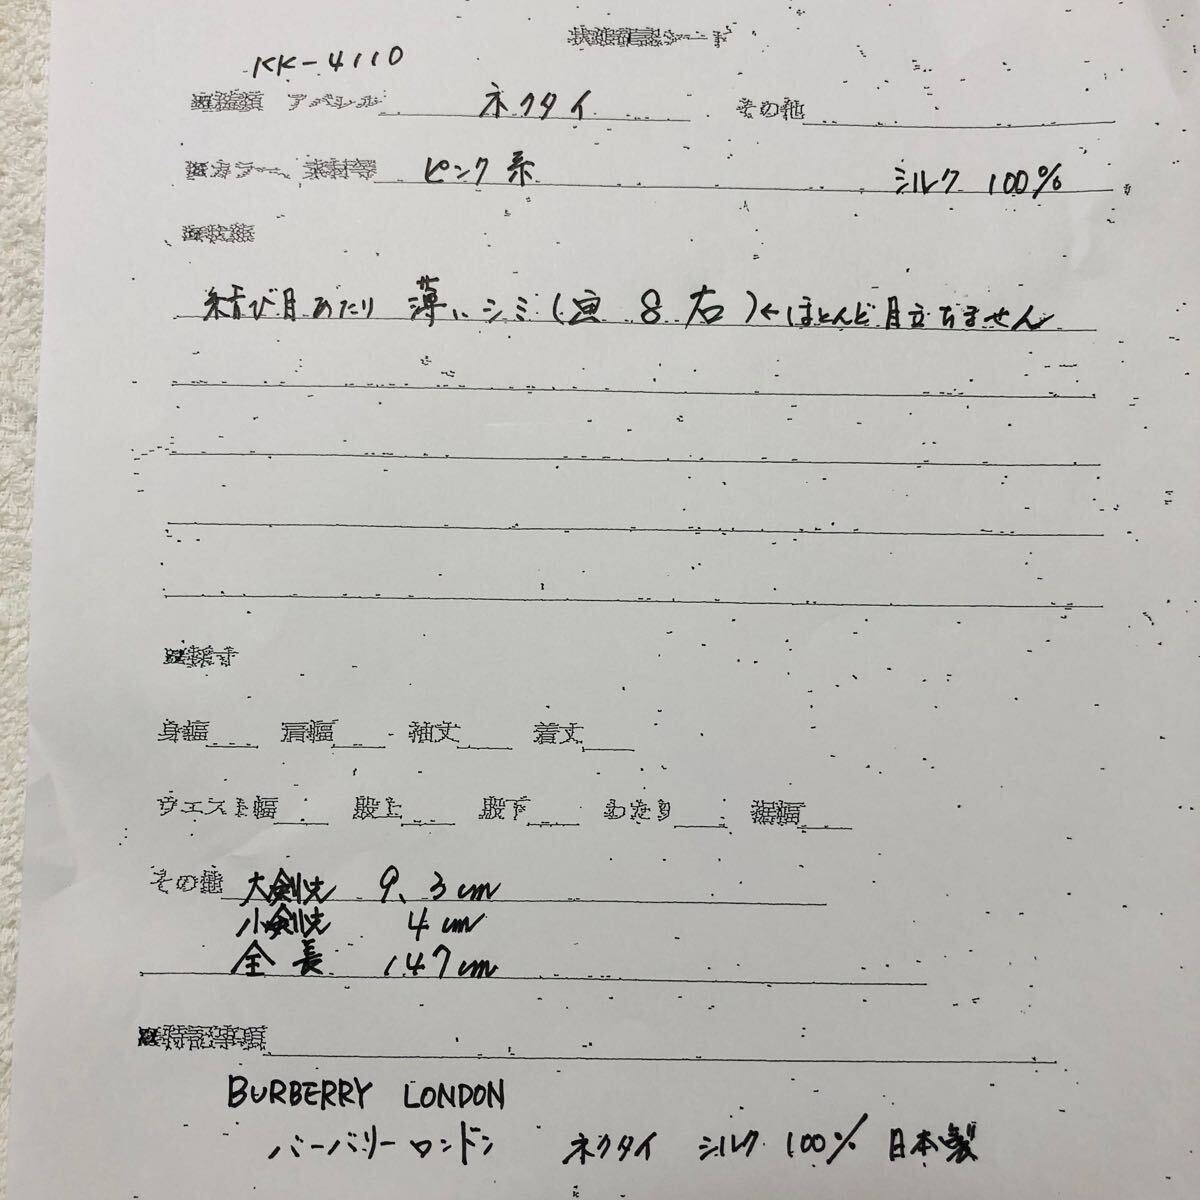 状態確認シート
KK-4110
■種類 アパレル ネクタイ その他
■カラー、素材等 ピンク系 シルク 100%
■状態
結び目あたり 薄いシミ(画 8 右)←ほとんど目立ちません
■採寸
身幅 肩幅 袖丈 着丈
ウエスト幅 股上 股下 わたり 裾幅
その他 大剣先 9.3cm
小剣先 4cm
全長 147cm
■特記事項
BURBERRY LONDON
バーバリーロンドン ネクタイ シルク 100% 日本製